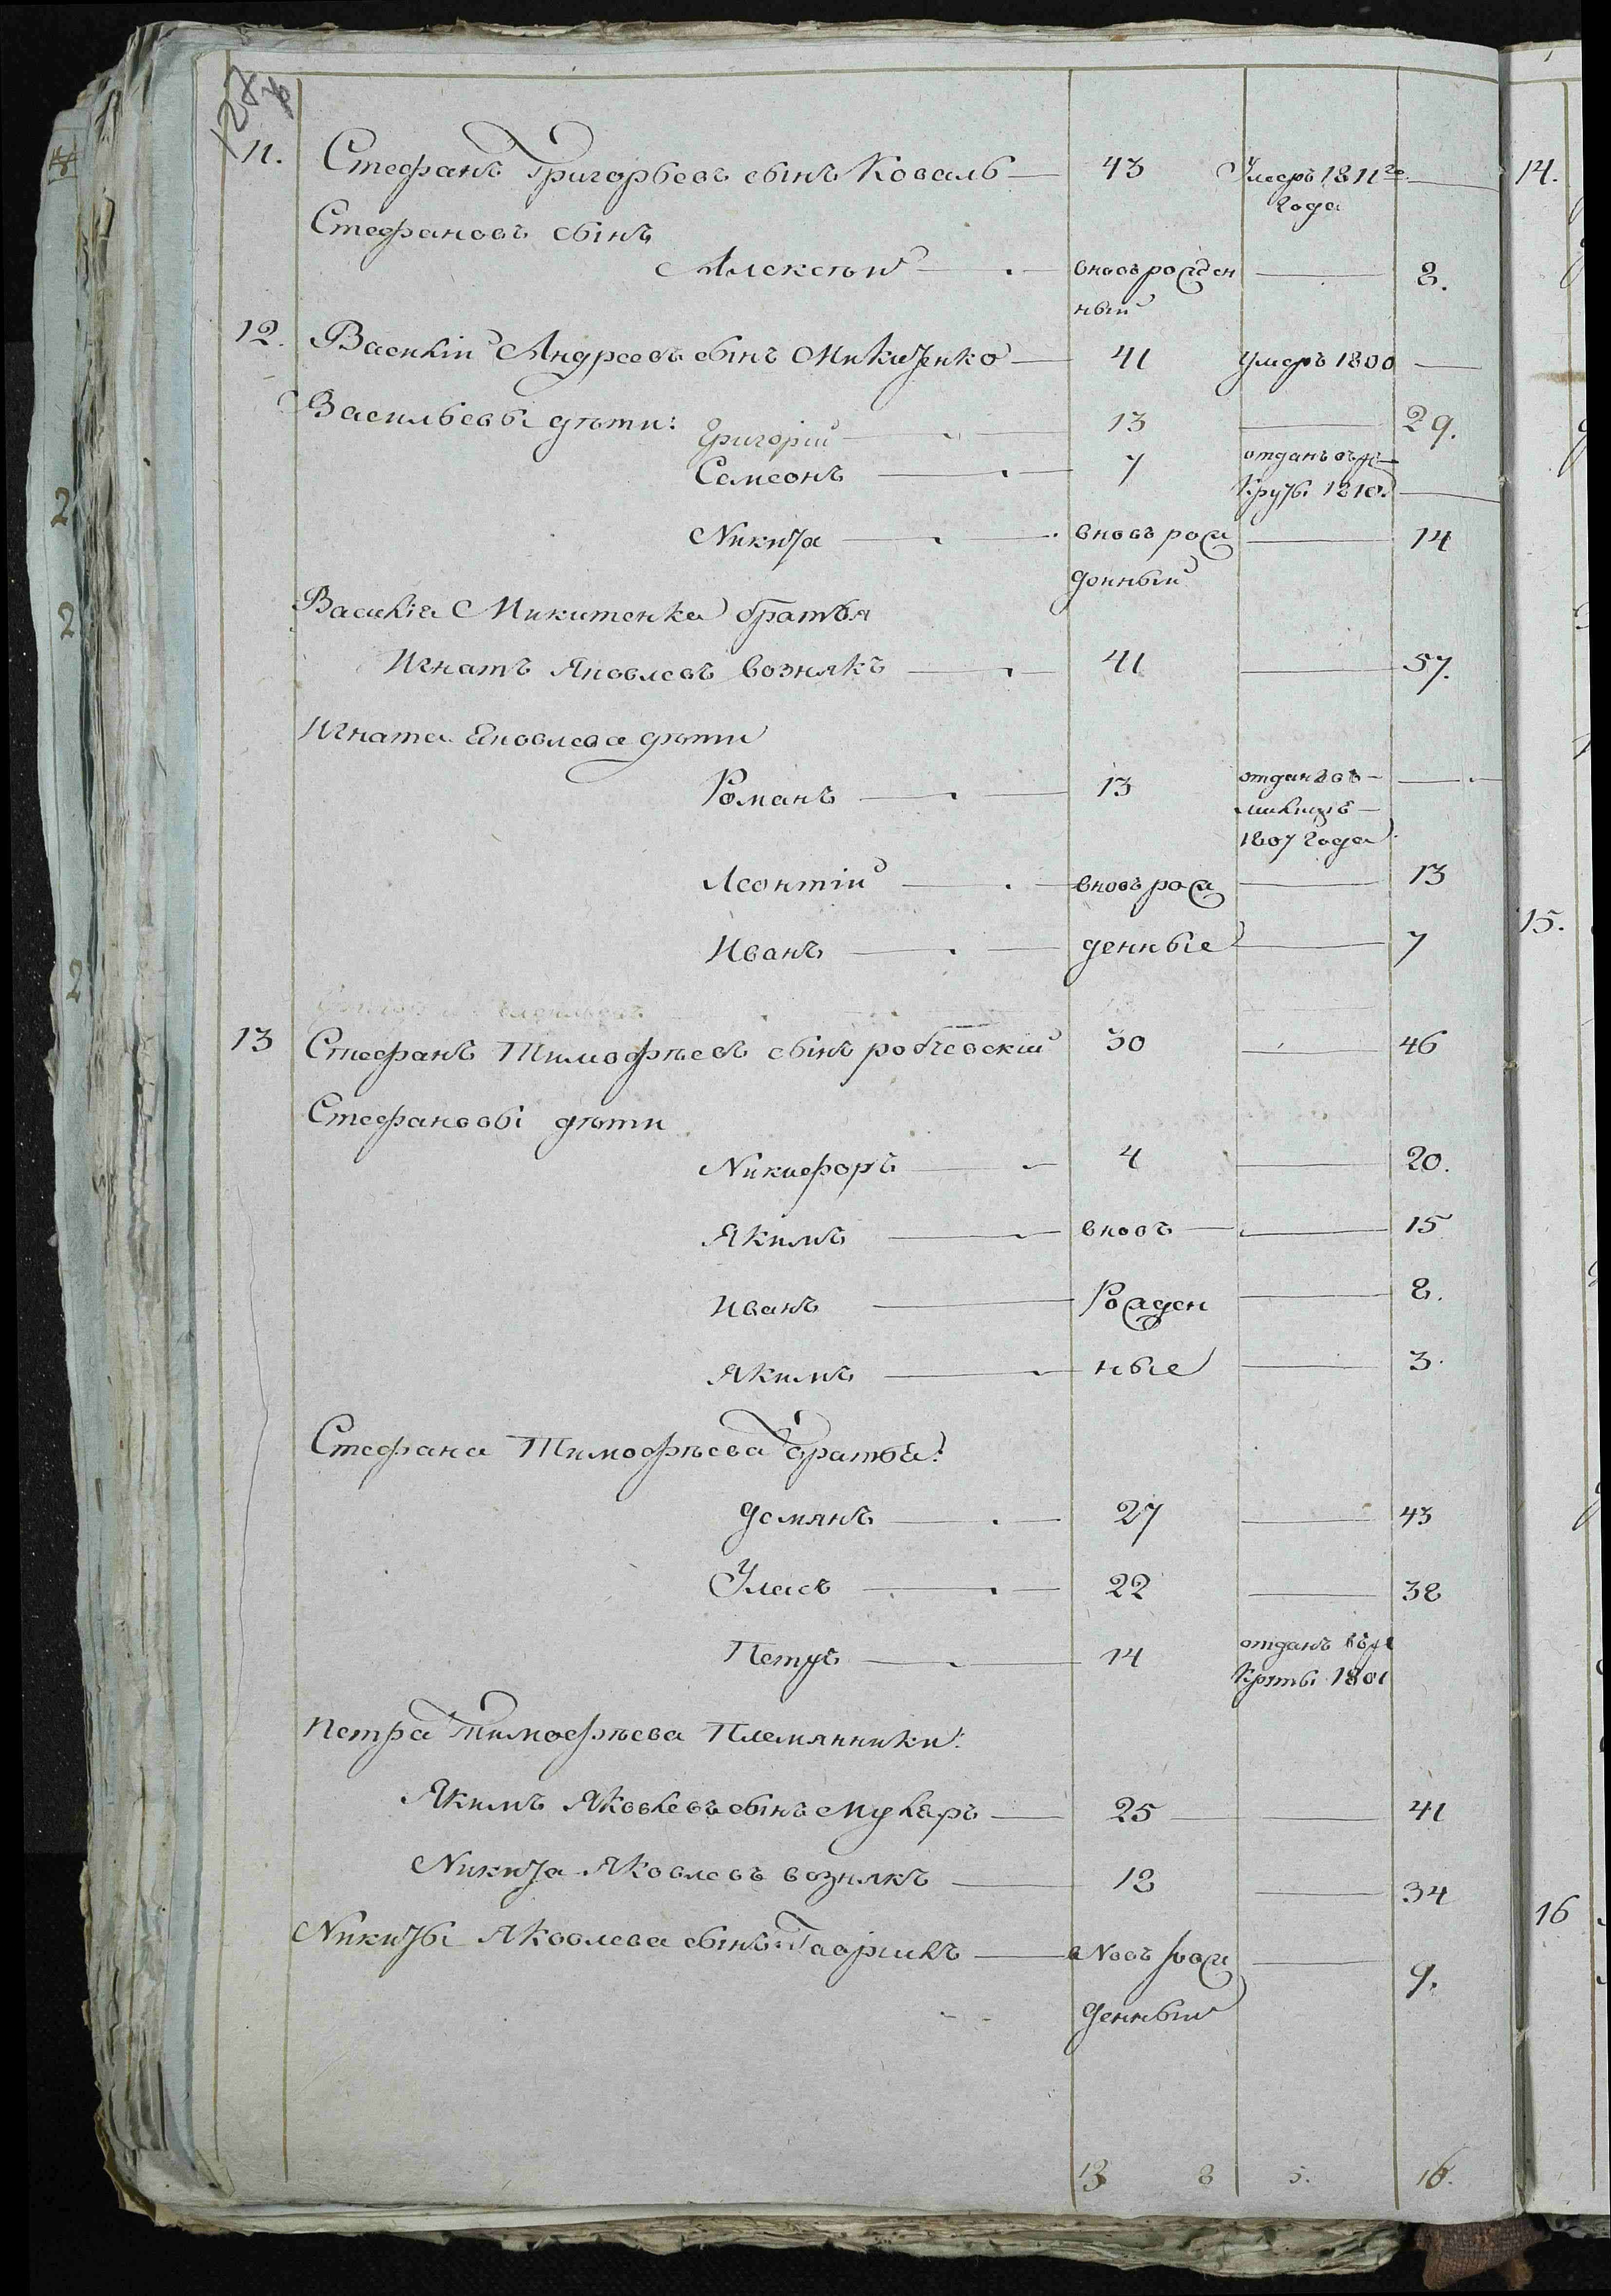 11. Стефанъ Григорьевъ сынъ Коваль — 43 Умеръ 1811го —
года
Стефановъ сынъ
Алексѣй — вновьрожден — 8.
ный
12. Василій Андреевъ сынъ Микитенко — 41 умеръ 1800 —
Васильевы дѣти:
Григорій — 13 — 29.
Самсонъ — 7 отданъ въ ре-
круты 1810. —
Никита — вновь рож — 14
донный
Василія Микитенка братья
Игнатъ Яковлевъ вознякъ — 41 — 57.
Игната Яковлева дѣти
Романъ — 13 отданъ въ —
милицѣ —
1807 года.
Леонтій — вновь рож — 13
Иванъ — денные — 7
13 Стефанъ Тимофѣевъ сынъ робчевскій 30 — 46
Стефановы дѣти
Никифоръ — 4 — 20.
Якимъ — вновь — 15
Иванъ — Рожден — 8.
Якимъ — ные — 3.
Стефана Тимофѣева братья:
Демянъ — 27 — 43
Уласъ — 22 — 38
Петръ — 14 отданъ въ ре
круты 1801
Петра Тимофѣева Племянники:
Якимъ Яковлевъ сынъ — 25 — 41
Никита Яковлевъ вознякъ — 18 — 34
Никиты Яковлева сынъ: Гаврилъ — вновь рож — 9.
денный
13 8 5. 16.
14.
15.
16